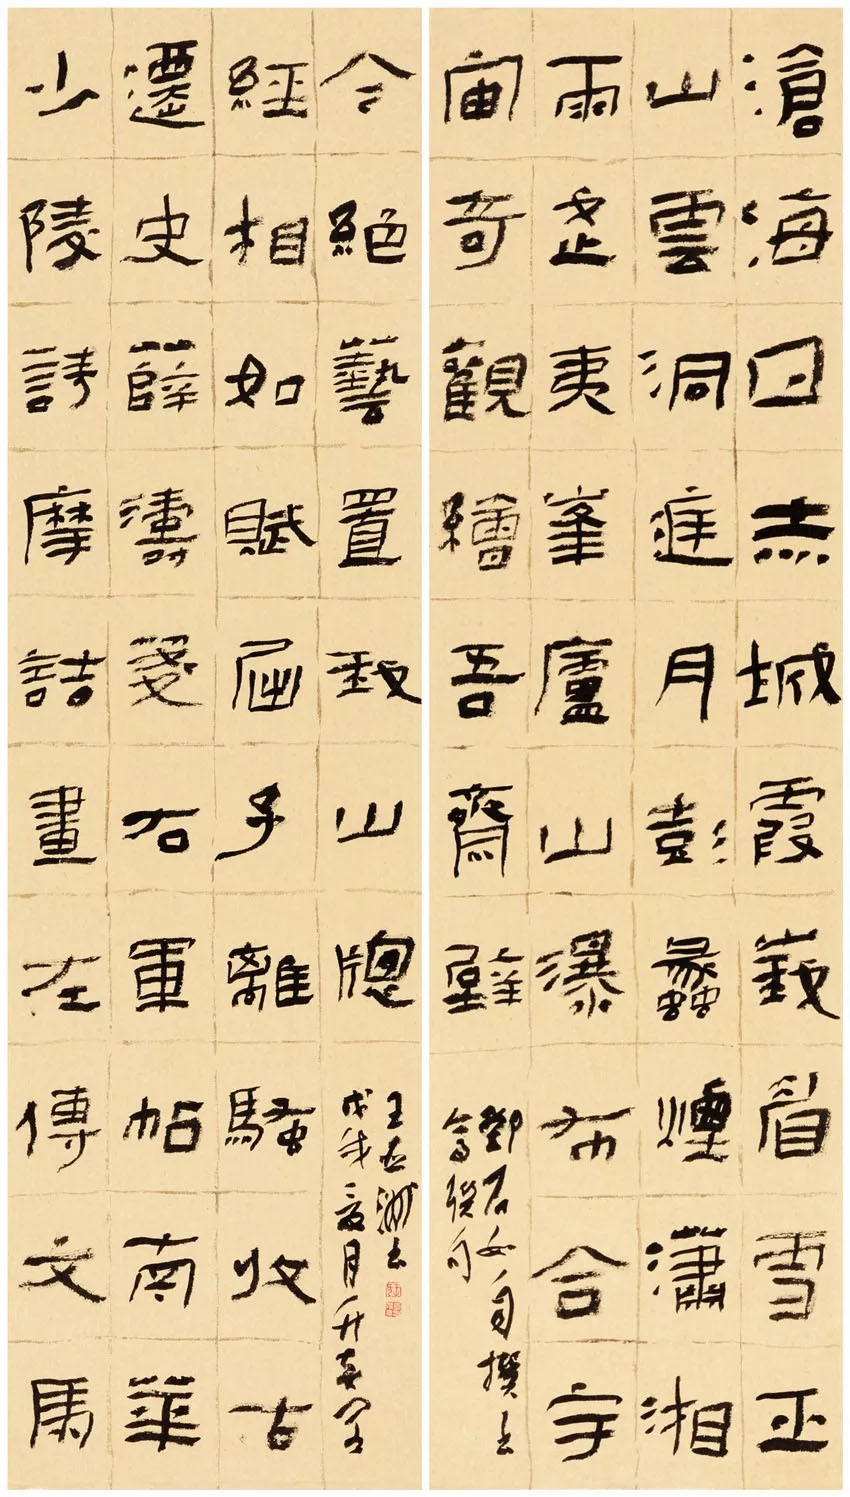 滄海日赤城霞峩眉雪巫
山雲洞庭月彭蠡煙瀟湘
雨武夷峯廬山瀑布合宇
宙奇觀繪吾齋壁
鄧石如自撰書
齋聯句
少陵詩摩詰畫左傳文馬
遷史薛濤箋右軍帖南華
經相如賦屈子離騷收古
今絕藝置我山牕
戊戌夏月於
王
書